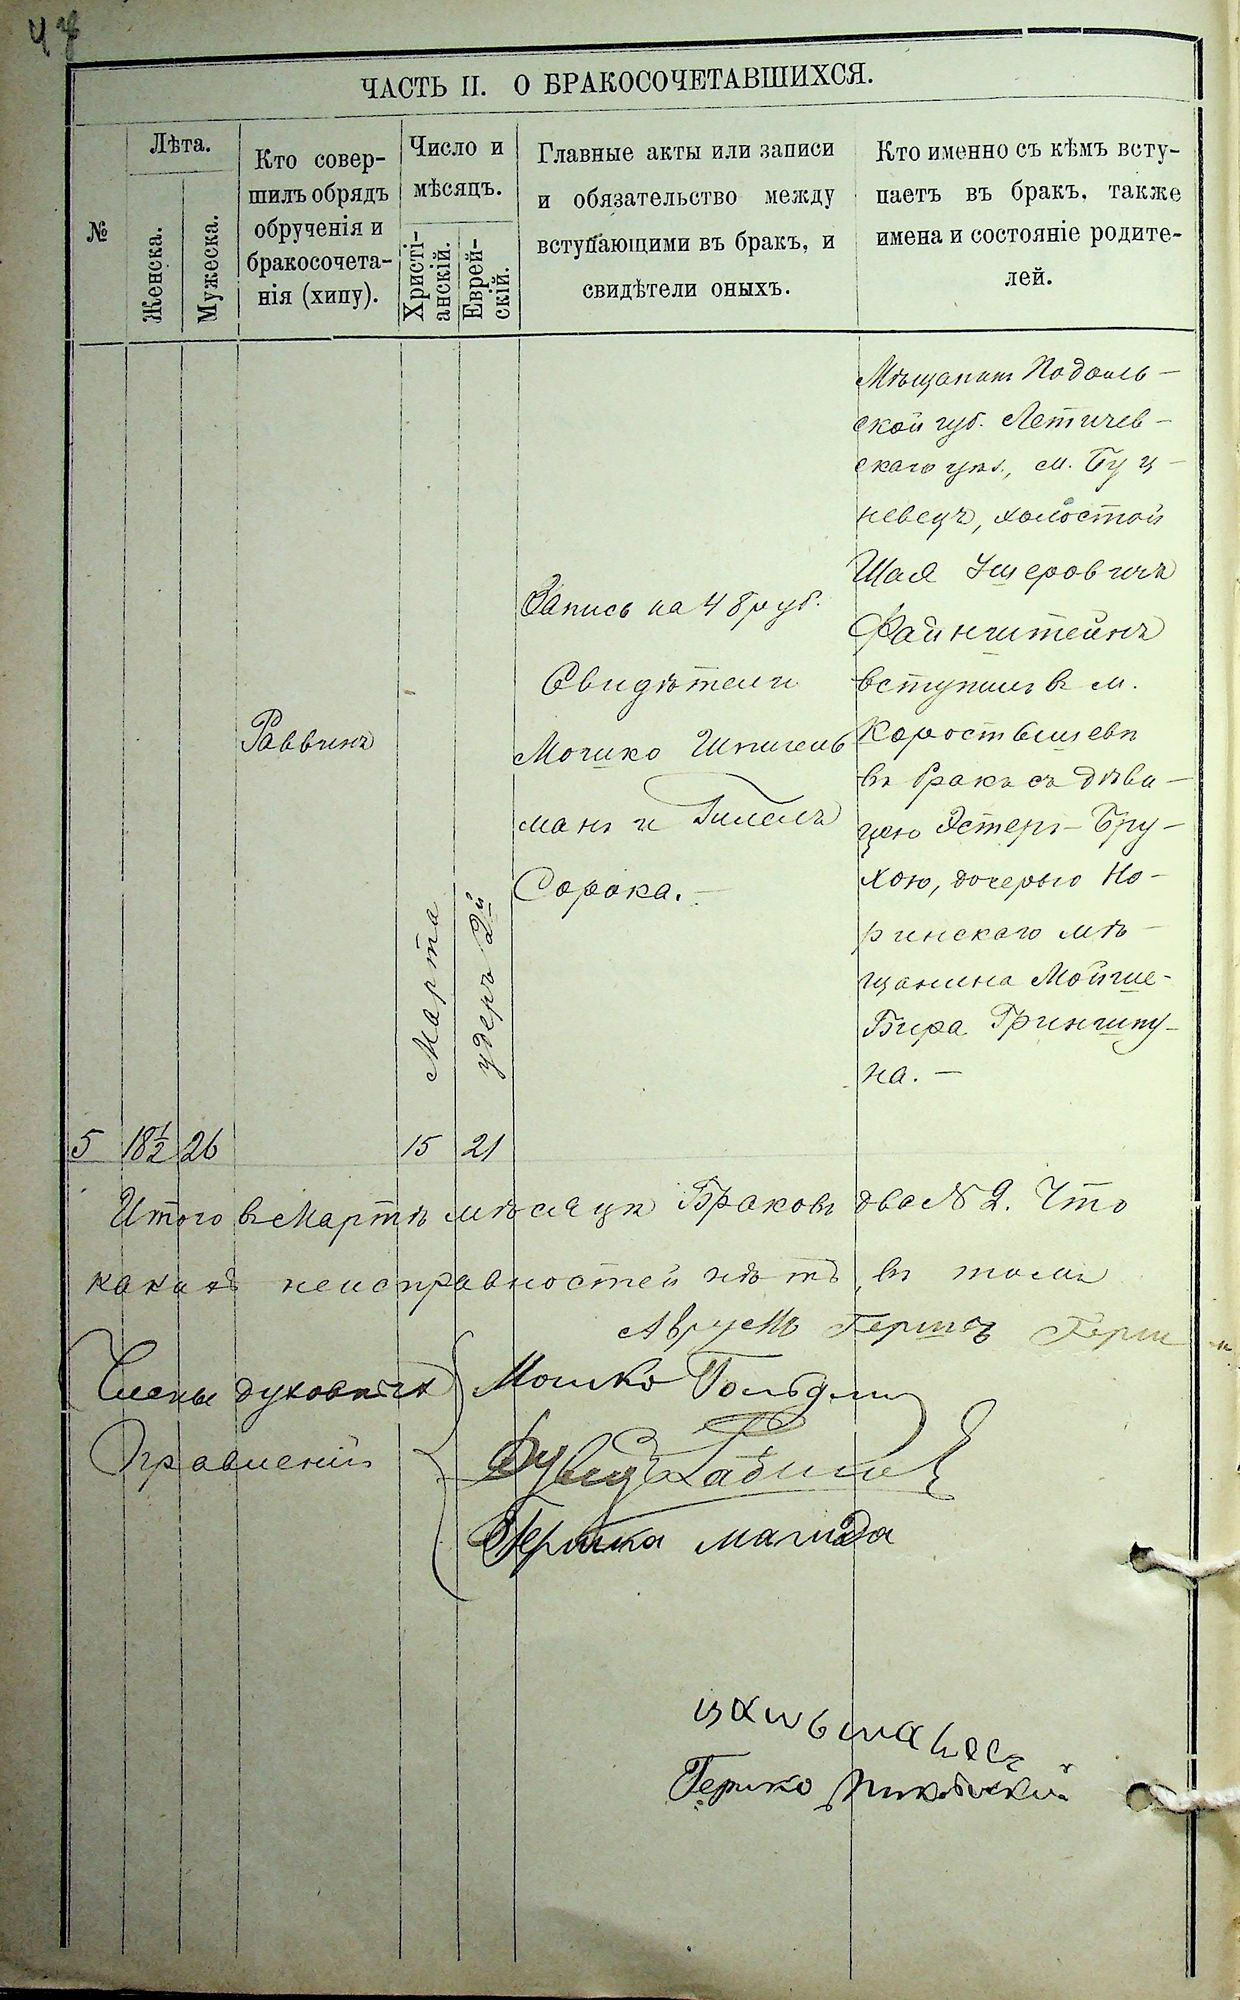 47
ЧАСТЬ II. О БРАКОСОЧЕТАВШИХСЯ.
№
Лѣта.
Женска.
Мужеска.
Кто совер-
шилъ обрядъ
обрученія и
бракосочета-
нія (хипу).
Число и
мѣсяцъ.
Христі-
анскій.
Еврей-
скій.
Главные акты или записи
и обязательство между
вступающими въ бракъ, и
свидѣтели оныхъ.
Кто именно съ кѣмъ всту-
паетъ въ бракъ, также
имена и состояніе родите-
лей.
5
18½
26
Раввинъ
Марта
15
удеръ 2й
21
Запись на 48 руб.
Свидѣтели
Мошко Шпигель
манъ и Гилель
Сорока. —
Мѣщанинъ Подоль-
ской губ. Летичев-
скаго уѣз., м. Буц-
невецъ, холостой
Шая Ушеровичъ
Файнштейнъ
вступилъ въ м.
Коростышевѣ
въ бракъ съ дѣви-
цею Эстеръ-Бру-
хою, дочерью Но-
ринскаго мѣ-
щанина Мойше-
Бира Гриншпу-
на. —
Итого въ Мартѣ мѣсяцѣ Браковъ два № 2. Что
какихъ неисправностей нѣтъ, въ томъ
Аврумъ Гершъ Герш
Члены духовныхъ
Правленій
Мошко Гольдм
Гершка Магида
Гершко